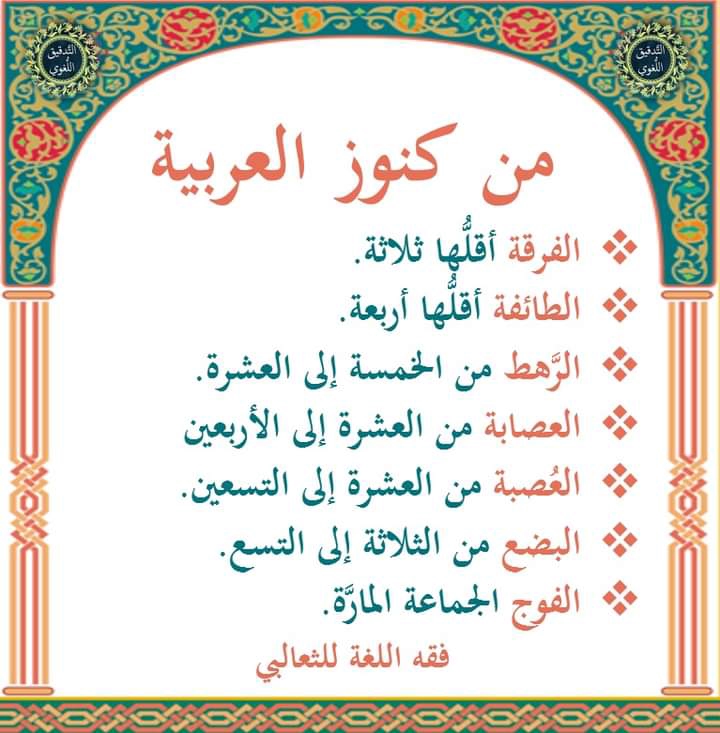 التَّدقيق
اللُّغوي
التَّدقيق
اللُّغوي
من كنوز العربية
❖ الفرقة أقلُّها ثلاثة.
❖ الطائفة أقلُّها أربعة.
❖ الرَّهط من الخمسة إلى العشرة.
❖ العصابة من العشرة إلى الأربعين
❖ العُصبة من العشرة إلى التسعين.
❖ البضع من الثلاثة إلى التسع.
❖ الفوج الجماعة المارَّة.
فقه اللغة للثعالبي